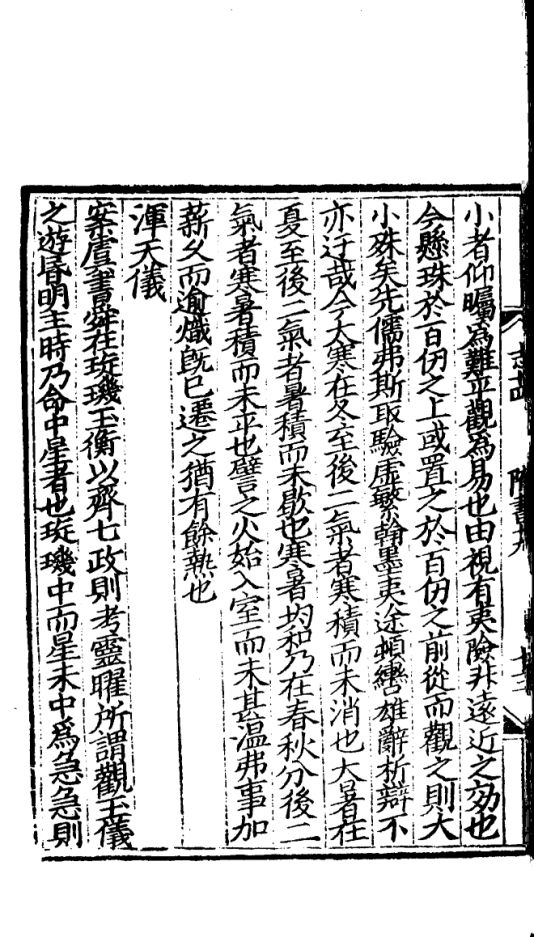 小者仰矚爲難平觀爲易也由視有夷險非遠近之効也
今懸珠於百仞之上或置之於百仞之前從而觀之則大
小殊矣先儒弗斯取驗虛繁翰墨夷途頓轡雄辭析辯不
亦迂哉今大寒在冬至後二氣者寒積而未消也大暑在
夏至後二氣者暑積而未歇也寒暑均和乃在春秋分後二
氣者寒暑積而未平也譬之火始入室而未甚温弗事加
薪久而逾熾既已遷之猶有餘熱也
渾天儀
案虞書舜在琁璣玉衡以齊七政則考靈曜所謂觀玉儀
之遊昏明主時乃命中星者也琁璣中而星未中爲急急則